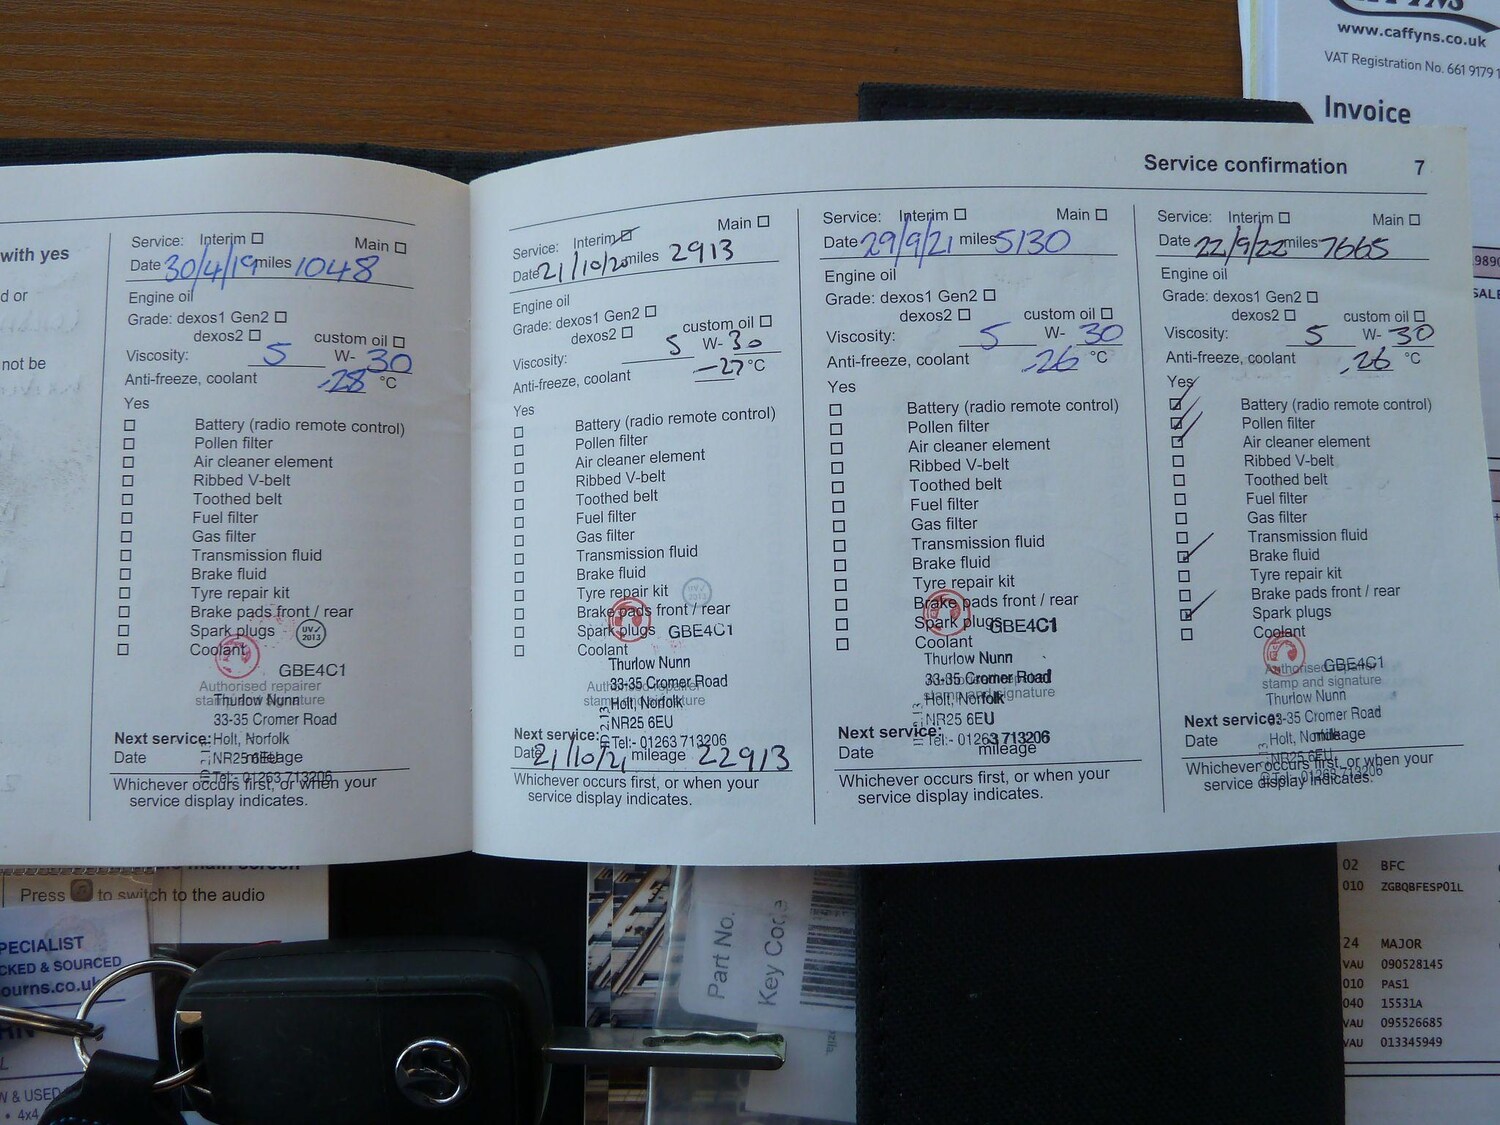 www.caffyns.co.uk
VAT Registration No. 661 9179 1
Invoice
Service confirmation 7
with yes
d or
not be
Service: Interim Main
Date 30/4/19 miles 1048
Engine oil
Grade: dexos1 Gen2
dexos2 custom oil
Viscosity: 5 W- 30
Anti-freeze, coolant -28 °C
Yes
Battery (radio remote control)
Pollen filter
Air cleaner element
Ribbed V-belt
Toothed belt
Fuel filter
Gas filter
Transmission fluid
Brake fluid
Tyre repair kit
Brake pads front / rear
Spark plugs
UV✓ 2013
Coolant
GBE4C1
Authorised repairer
stamp and signature
Thurlow Nunn
33-35 Cromer Road
Next service: Holt, Norfolk
Date NR25 6EU mileage
Tel:- 01263 713206
Whichever occurs first, or when your
service display indicates.
Service: Interim Main
Date 21/10/20 miles 2913
Engine oil
Grade: dexos1 Gen2
dexos2 custom oil
Viscosity: 5 W- 30
Anti-freeze, coolant -27 °C
Yes
Battery (radio remote control)
Pollen filter
Air cleaner element
Ribbed V-belt
Toothed belt
Fuel filter
Gas filter
Transmission fluid
Brake fluid
Tyre repair kit
UV✓ 2013
Brake pads front / rear
Spark plugs GBE4C1
Coolant
Thurlow Nunn
33-35 Cromer Road
Authorised repairer
stamp and signature
Holt, Norfolk
NR25 6EU
Next service: Tel:- 01263 713206
Date 21/10/21 mileage 22913
Whichever occurs first, or when your
service display indicates.
Service: Interim Main
Date 29/9/21 miles 5130
Engine oil
Grade: dexos1 Gen2
dexos2 custom oil
Viscosity: 5 W- 30
Anti-freeze, coolant -26 °C
Yes
Battery (radio remote control)
Pollen filter
Air cleaner element
Ribbed V-belt
Toothed belt
Fuel filter
Gas filter
Transmission fluid
Brake fluid
Tyre repair kit
Brake pads front / rear
Spark plugs GBE4C1
Coolant
Thurlow Nunn
33-35 Cromer Road
stamp and signature
Holt, Norfolk
NR25 6EU
Next service: Tel:- 01263 713206
Date mileage
Whichever occurs first, or when your
service display indicates.
Service: Interim Main
Date 22/9/22 miles 7665
Engine oil
Grade: dexos1 Gen2
dexos2 custom oil
Viscosity: 5 W- 30
Anti-freeze, coolant -26 °C
Yes
Battery (radio remote control)
Pollen filter
Air cleaner element
Ribbed V-belt
Toothed belt
Fuel filter
Gas filter
Transmission fluid
Brake fluid
Tyre repair kit
Brake pads front / rear
Spark plugs
Coolant
Authorised repairer GBE4C1
stamp and signature
Thurlow Nunn
Next service: 33-35 Cromer Road
Date Holt, Norfolk mileage
NR25 6EU
Whichever occurs first, or when your
Tel:- 01263 713206
service display indicates.
main screen
Press to switch to the audio
PECIALIST
CKED & SOURCED
ourns.co.uk
W & USED
• 4x4
Part No.
Key Code
02 BFC
010 ZGBQBFESP01L
24 MAJOR
VAU 090528145
010 PAS1
040 15531A
VAU 095526685
VAU 013345949